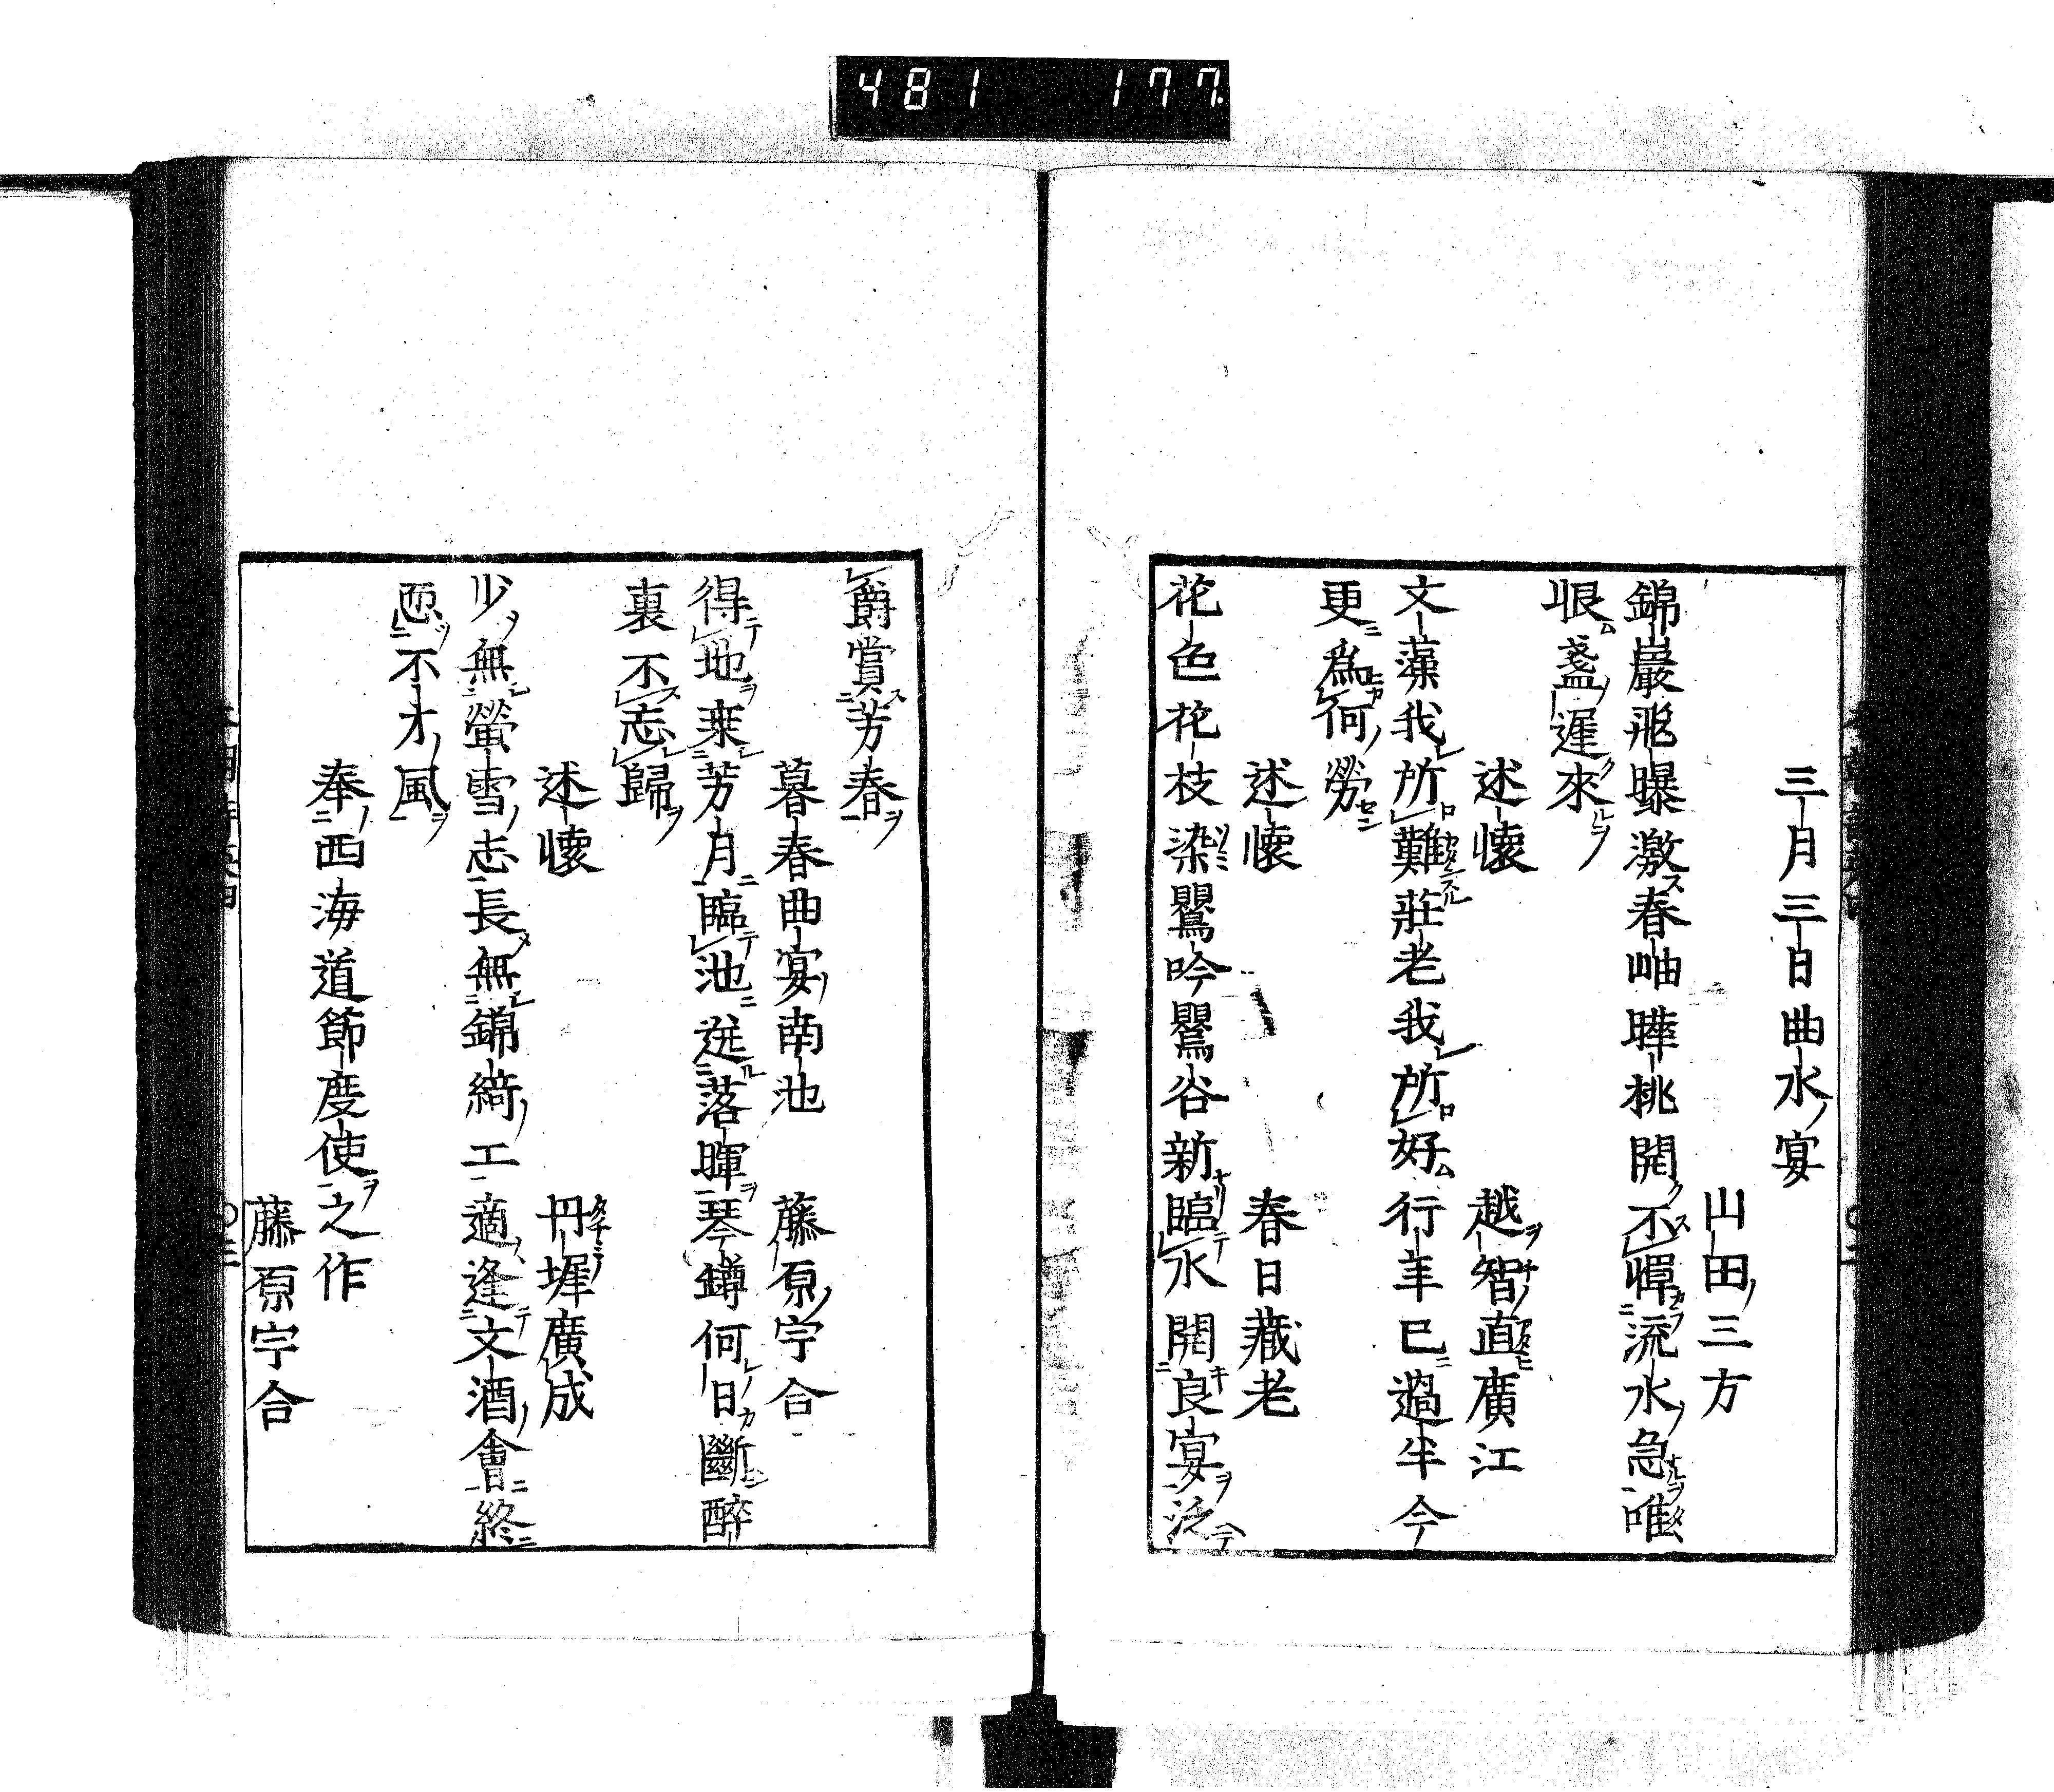 481 177
三月三日曲水ノ宴
山田ノ三方
錦巖飛曝激春岫曄桃開不憚流水急唯
恨盞遲來
述懷
越智直廣江
文藻我所難莊老我所好行年已過半今
更爲何勞
述懷
春日藏老
花色花枝染鸎吟鸎谷新臨水開良宴泛
爵賞芳春
暮春曲宴南池
藤原宇合
得地乗芳月臨池送落暉琴罇何日斷醉
裏不忘歸
述懷
丹墀廣成
少無螢雪志長無錦綺工適逢文酒會終
恧不才風
奉西海道節度使之作
藤原宇合